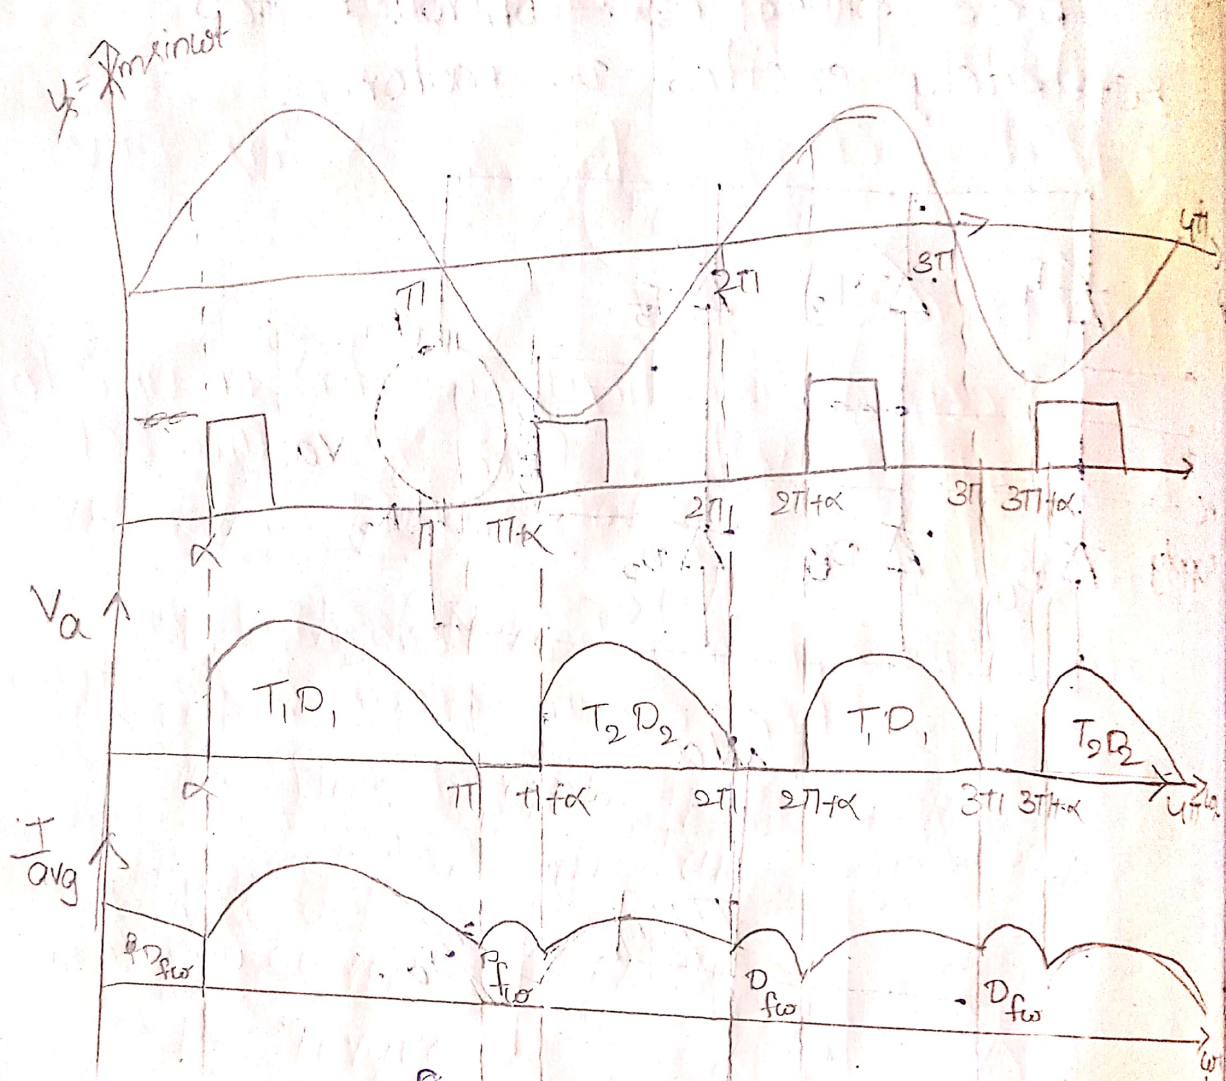 Vs = Vm sinωt
π 2π 3π 4π
α π π+α 2π 2π+α 3π 3π+α
Va
T1D1 T2D2 T1D1 T2D2
α π π+α 2π 2π+α 3π 3π+α 4π
Iavg
Dfω Dfω Dfω Dfω
ω